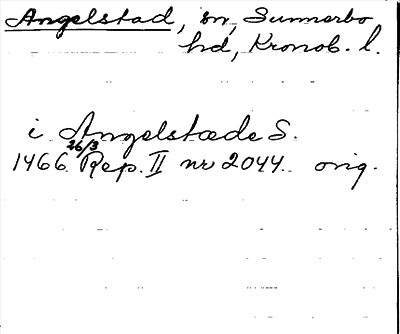 Angelstad, sn, Sunnerbo
hd, Kronob. l.
i Angelstæde S.
26/3
1466 Rep. II nr 2044. orig.